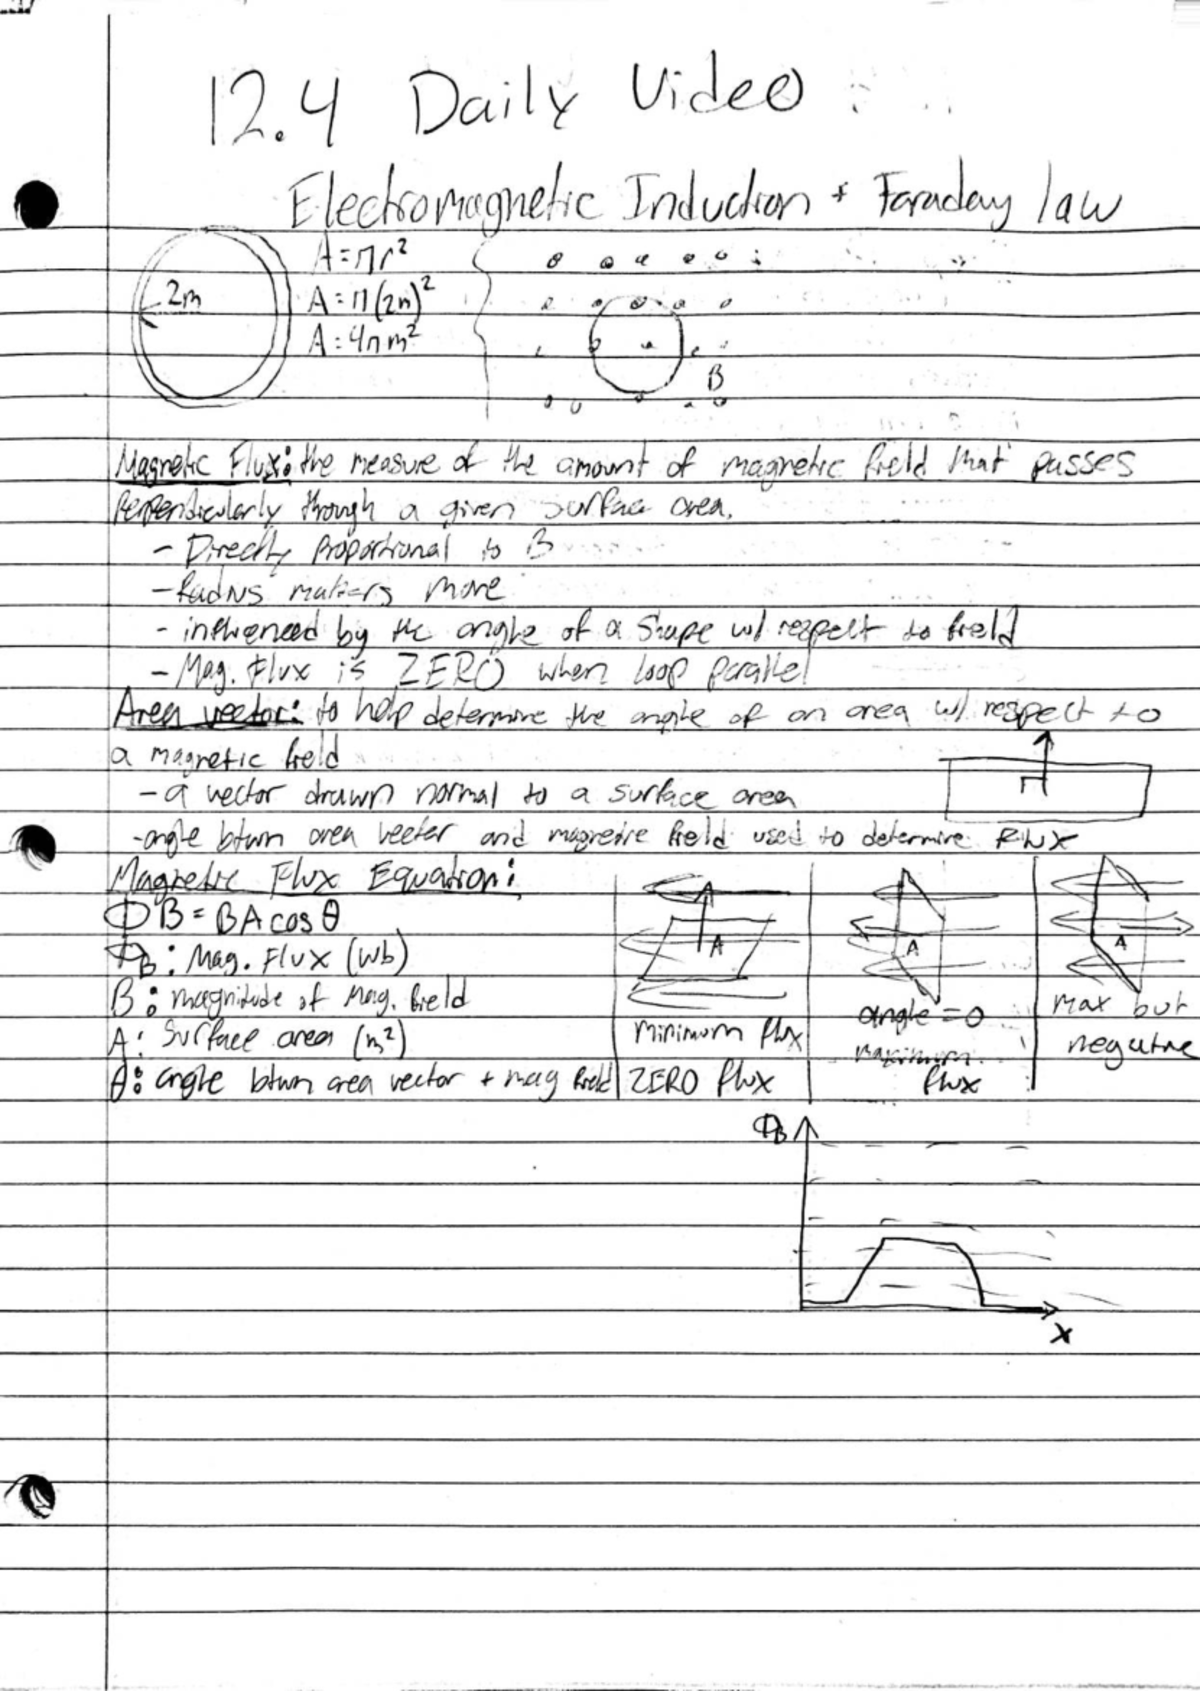 12.4 Daily Video
Electromagnetic Induction + Faraday law
2m
A = πr²
A = π(2m)²
A = 4π m²
B
Magnetic Flux: the measure of the amount of magnetic field that passes
perpendicularly through a given surface area.
- Directly proportional to B
- Radius matters more
- influenced by the angle of a shape w/ respect to field
- Mag. Flux is ZERO when loop parallel
Area vector: to help determine the angle of an area w/ respect to
a magnetic field
- a vector drawn normal to a surface area
- angle btwn area vector and magnetic field used to determine flux
Magnetic Flux Equation:
ΦB = BA cos θ
ΦB: Mag. Flux (Wb)
B: magnitude of Mag. field
A: Surface area (m²)
θ: angle btwn area vector + mag field
A
minimum flux
ZERO flux
A
angle = 0
maximum
flux
A
max but
negative
ΦB
x